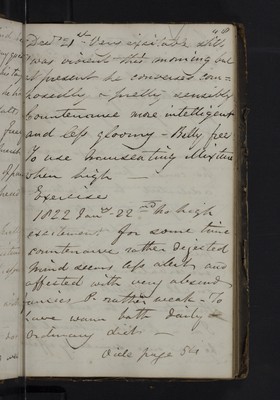 48
Decr 21st Very irritable still
was violent this morning but
at present he converses com=
posedly & pretty sensibly
Countenance more intelligent
and less gloomy - Belly free
To use nauseating Mixture
when high —
Exercise
1822 Jany 22nd No high
excitement for some time
countenance rather dejected
Mind seems less alert and
affected with very absurd
fancies P. rather weak - To
have warm bath daily &
ordinary diet —
Vide page